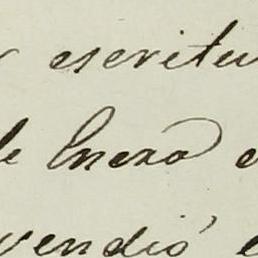 y escritu
de Enero e
vendió e